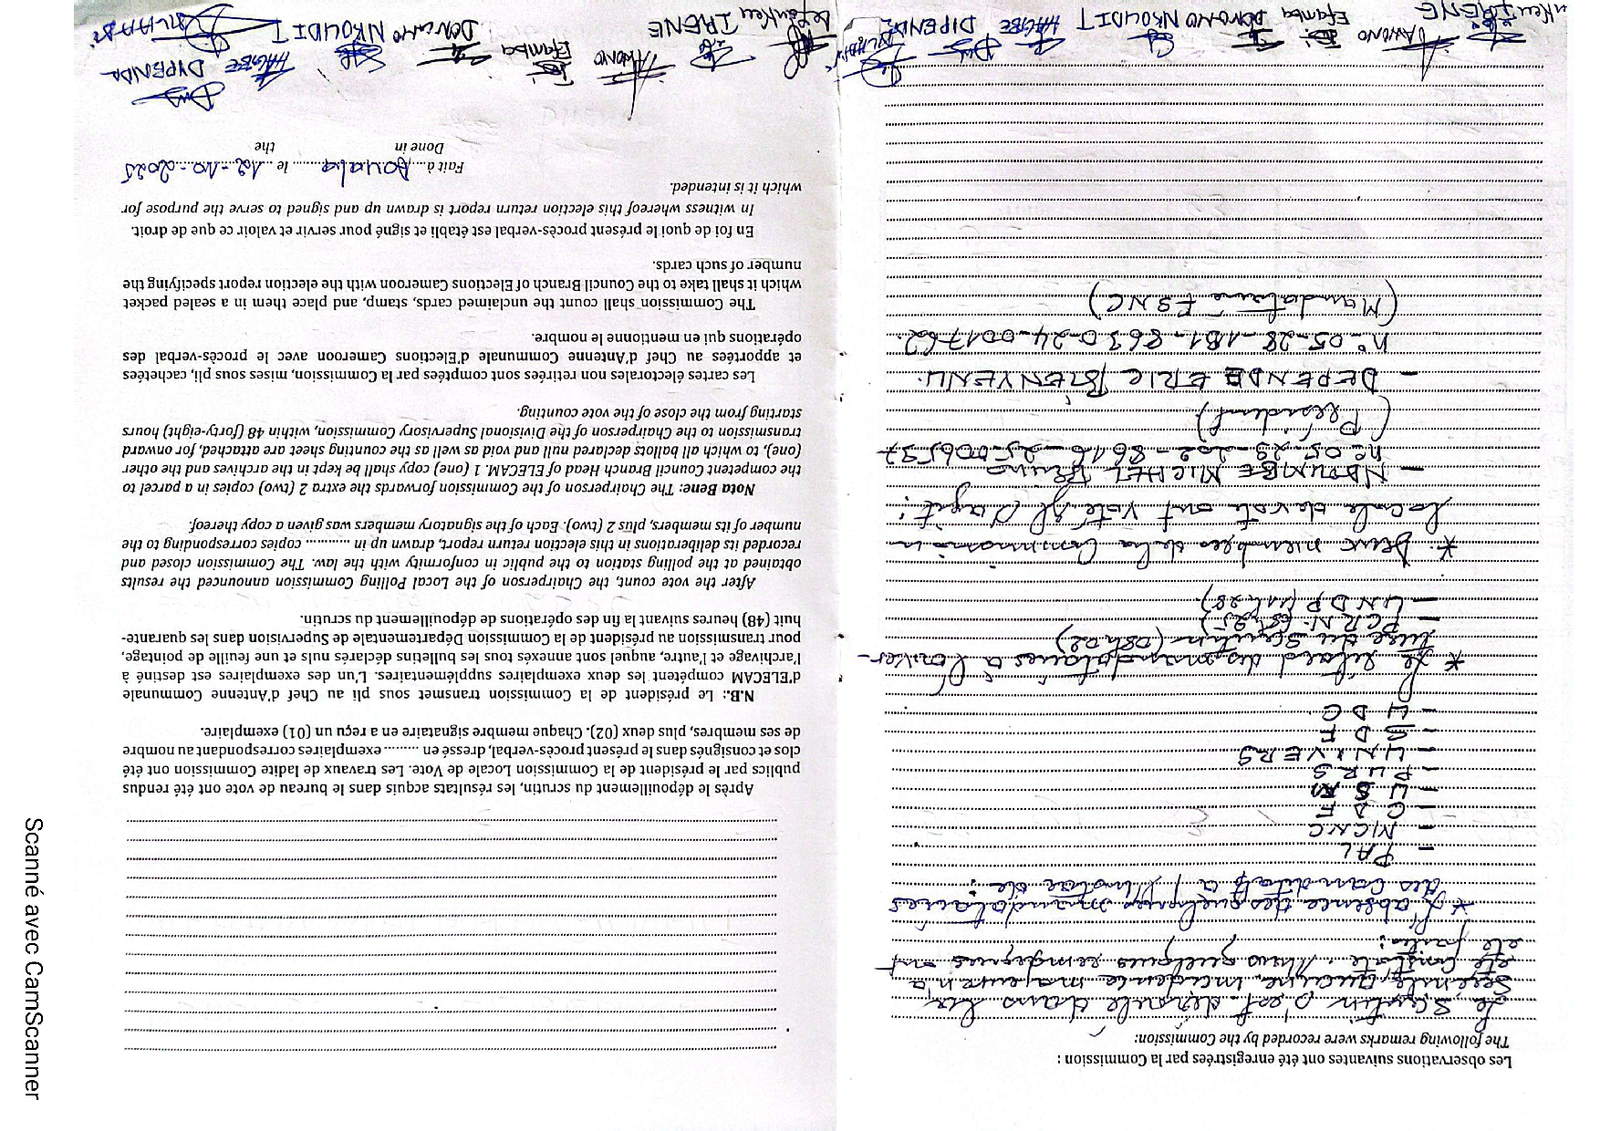 Les observations suivantes ont été enregistrées par la Commission :
The following remarks were recorded by the Commission:
Le scrutin s'est déroulé dans la
sérénité, aucune incidence majeure n'a
été constaté. Mais quelques remarques ont
été faites :
* L'absence des quelques mandataires
des candidats à l'instar de :
- PAL
- MCNC
- C D F
- U S M
- P U R S
- U N I V E R S
- S D F
- U D C
* Le retard des mandataires à l'ouver-
ture du scrutin (08h02)
- PCRN (09h25)
- UNDP (11h28)
* Deux membres de la Commission
Locale de vote ont voté. Il s'agit :
- NDOUMBE MICHEL Bruno
n° 05-29-202-8616-25-0006597
(Président)
- DEPENDE ERIC BIENVENU.
n° 05-28-1B1-8630-24-001762.
(Mandataire FSNC)
IRENE
AWONO
Efamba
DONONO NKOUDIT
HAGBE
DIPENDE
Après le dépouillement du scrutin, les résultats acquis dans le bureau de vote ont été rendus
publics par le président de la Commission Locale de Vote. Les travaux de ladite Commission ont été
clos et consignés dans le présent procès-verbal, dressé en ......... exemplaires correspondant au nombre
de ses membres, plus deux (02). Chaque membre signataire en a reçu un (01) exemplaire.
N.B.: Le président de la Commission transmet sous pli au Chef d'Antenne Communale
d'ELECAM compétent les deux exemplaires supplémentaires. L'un des exemplaires est destiné à
l'archivage et l'autre, auquel sont annexés tous les bulletins déclarés nuls et une feuille de pointage,
pour transmission au président de la Commission Départementale de Supervision dans les quarante-
huit (48) heures suivant la fin des opérations de dépouillement du scrutin.
After the vote count, the Chairperson of the Local Polling Commission announced the results
obtained at the polling station to the public in conformity with the law. The Commission closed and
recorded its deliberations in this election return report, drawn up in ........... copies corresponding to the
number of its members, plus 2 (two). Each of the signatory members was given a copy thereof.
Nota Bene: The Chairperson of the Commission forwards the extra 2 (two) copies in a parcel to
the competent Council Branch Head of ELECAM. 1 (one) copy shall be kept in the archives and the other
(one), to which all ballots declared null and void as well as the counting sheet are attached, for onward
transmission to the Chairperson of the Divisional Supervisory Commission, within 48 (forty-eight) hours
starting from the close of the vote counting.
Les cartes électorales non retirées sont comptées par la Commission, mises sous pli, cachetées
et apportées au Chef d'Antenne Communale d'Elections Cameroon avec le procès-verbal des
opérations qui en mentionne le nombre.
The Commission shall count the unclaimed cards, stamp, and place them in a sealed packet
which it shall take to the Council Branch of Elections Cameroon with the election report specifying the
number of such cards.
En foi de quoi le présent procès-verbal est établi et signé pour servir et valoir ce que de droit.
In witness whereof this election return report is drawn up and signed to serve the purpose for
which it is intended.
Fait à Douala le 12-10-2025
Done in the
IRENE
AWONO
Efamba
DONONO NKOUDIT
HAGBE
DYPENDE
Scanné avec CamScanner